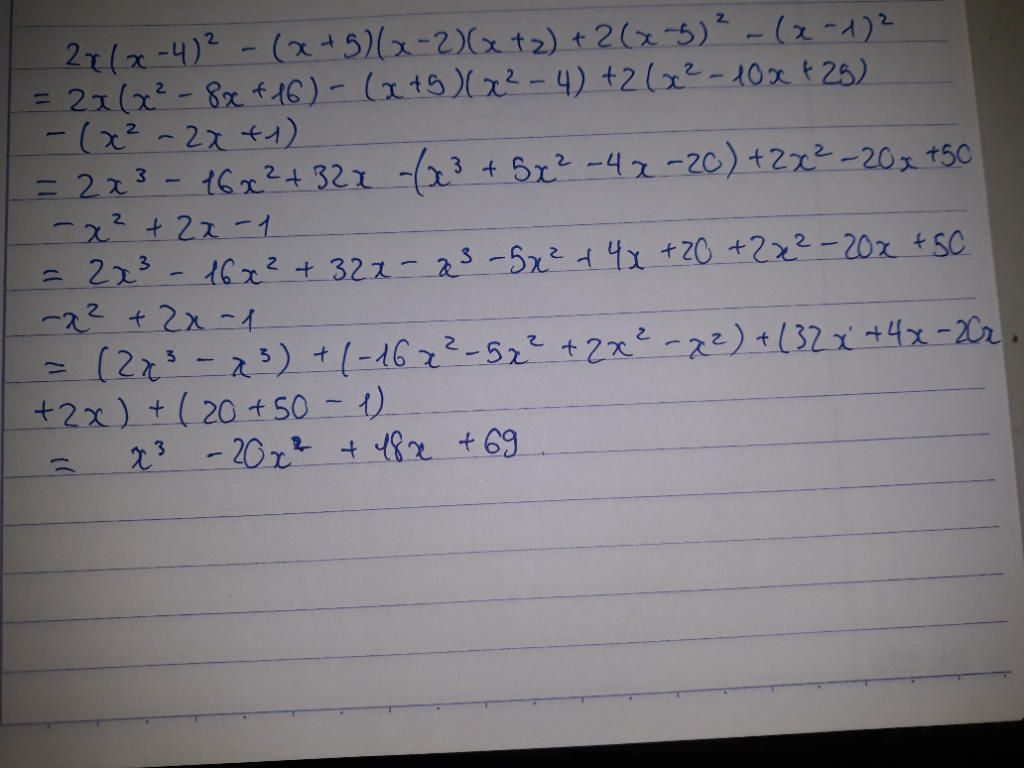 2x(x-4)² - (x+5)(x-2)(x+2) + 2(x-5)² - (x-1)²
= 2x(x² - 8x + 16) - (x+5)(x² - 4) + 2(x² - 10x + 25)
- (x² - 2x + 1)
= 2x³ - 16x² + 32x - (x³ + 5x² - 4x - 20) + 2x² - 20x + 50
- x² + 2x - 1
= 2x³ - 16x² + 32x - x³ - 5x² + 4x + 20 + 2x² - 20x + 50
- x² + 2x - 1
= (2x³ - x³) + (-16x² - 5x² + 2x² - x²) + (32x + 4x - 20x
+ 2x) + (20 + 50 - 1)
= x³ - 20x² + 18x + 69